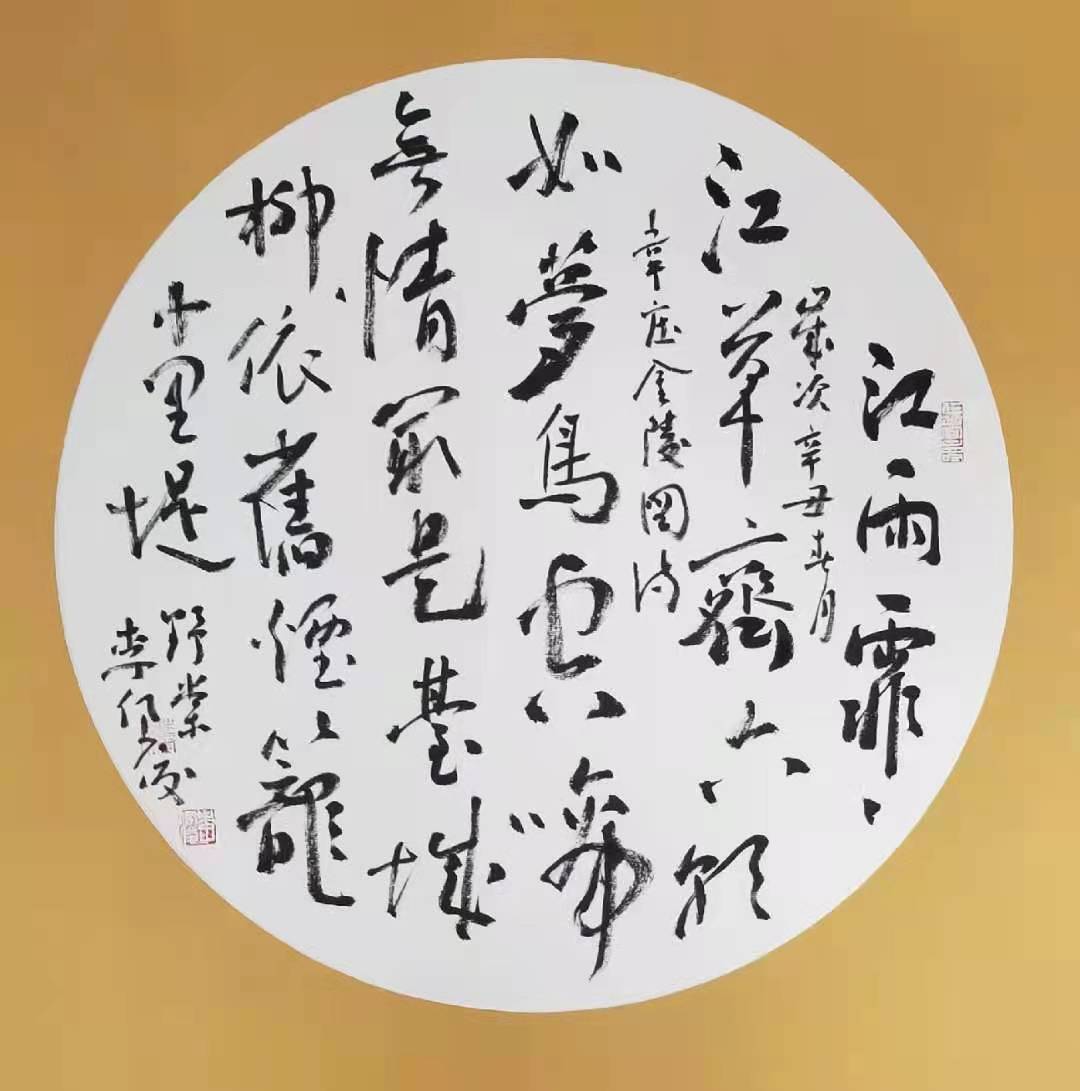 江雨霏〻
歲次辛丑春月
江草齊六朝
韋莊金陵圖詩
如夢鳥空啼
無情最是臺城
柳依舊煙籠
十里堤
野棠
李